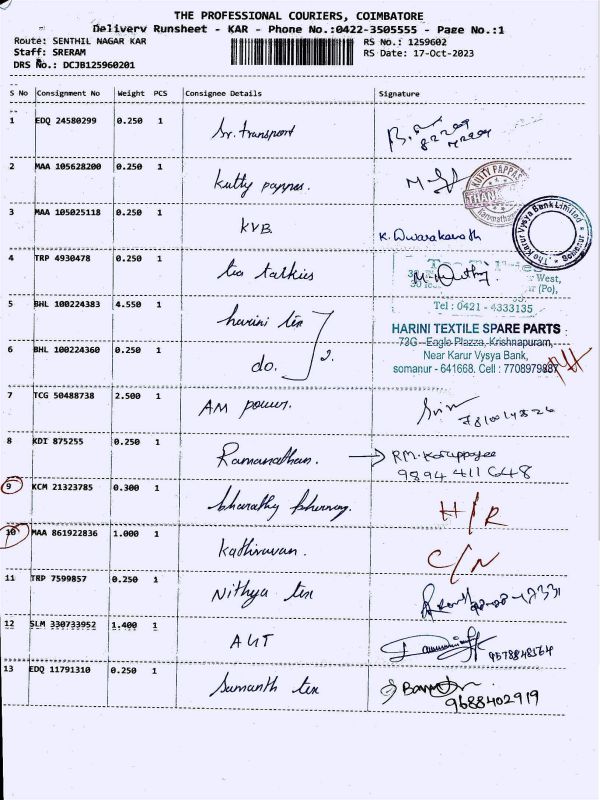 THE PROFESSIONAL COURIERS, COIMBATORE
Delivery Runsheet - KAR - Phone No.:0422-3505555 - Page No.:1
Route: SENTHIL NAGAR KAR RS No.: 1259602
Staff: SRERAM RS Date: 17-Oct-2023
DRS No.: DCJB125960201
S No Consignment No Weight PCS Consignee Details Signature
1 EDQ 24580299 0.250 1 Sr. transport
2 MAA 105628200 0.250 1 Kutty pappas. KUTTY PAPPAS
3 MAA 105025118 0.250 1 KVB K. Dwarakanath The Karur Vysya Bank Limited * Somanur *
4 TRP 4930478 0.250 1 tea talkies
West,
(Po),
Tel : 0421 - 4333135
5 BHL 100224383 4.550 1 harini tex
HARINI TEXTILE SPARE PARTS
73G - Eagle Plazza, Krishnapuram,
6 BHL 100224360 0.250 1 do. 2. Near Karur Vysya Bank,
somanur - 641668. Cell : 7708979887
7 TCG 50488738 2.500 1 AM power.
8 KDI 875255 0.250 1 Ramanathan. RM. Karuppayee
9894411648
9 KCM 21323785 0.300 1 bharathy H/R
10 MAA 861922836 1.000 1 Kathiravan. C/N
11 TRP 7599857 0.250 1 Nithya tex
12 SLM 330733952 1.400 1 AUT 9578848564
13 EDQ 11791310 0.250 1 Sumanth tex
9688402919